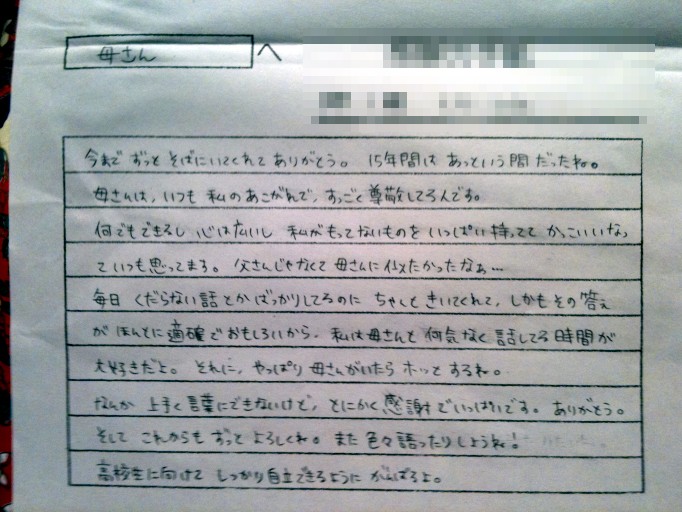 母さん へ
今まで ずっと そばにいてくれて ありがとう。 15年間は あっという間 だったね。
母さんは、いつも 私のあこがれで、すっごく 尊敬してるんです。
何でもできるし 心は広いし 私がもってないものを いっぱい 持ってて かっこいいなっ
ていつも思ってまる。 父さんじゃなくて 母さんに似たかったなぁ…
毎日 くだらない話とか ばっかりしてるのに ちゃんときいてくれて、しかもその答え
が ほんとに適確でおもしろいから、私は母さんと 何気なく 話してる時間が
大好きだよ。 それに、やっぱり 母さんがいたら ホッと するね。
なんか 上手く 言葉にできないけど、とにかく 感謝でいっぱいです。 ありがとう。
そして これからも ずっと よろしくね。 また 色々語ったりしようね!
高校生に向けて しっかり自立できるように がんばるよ。